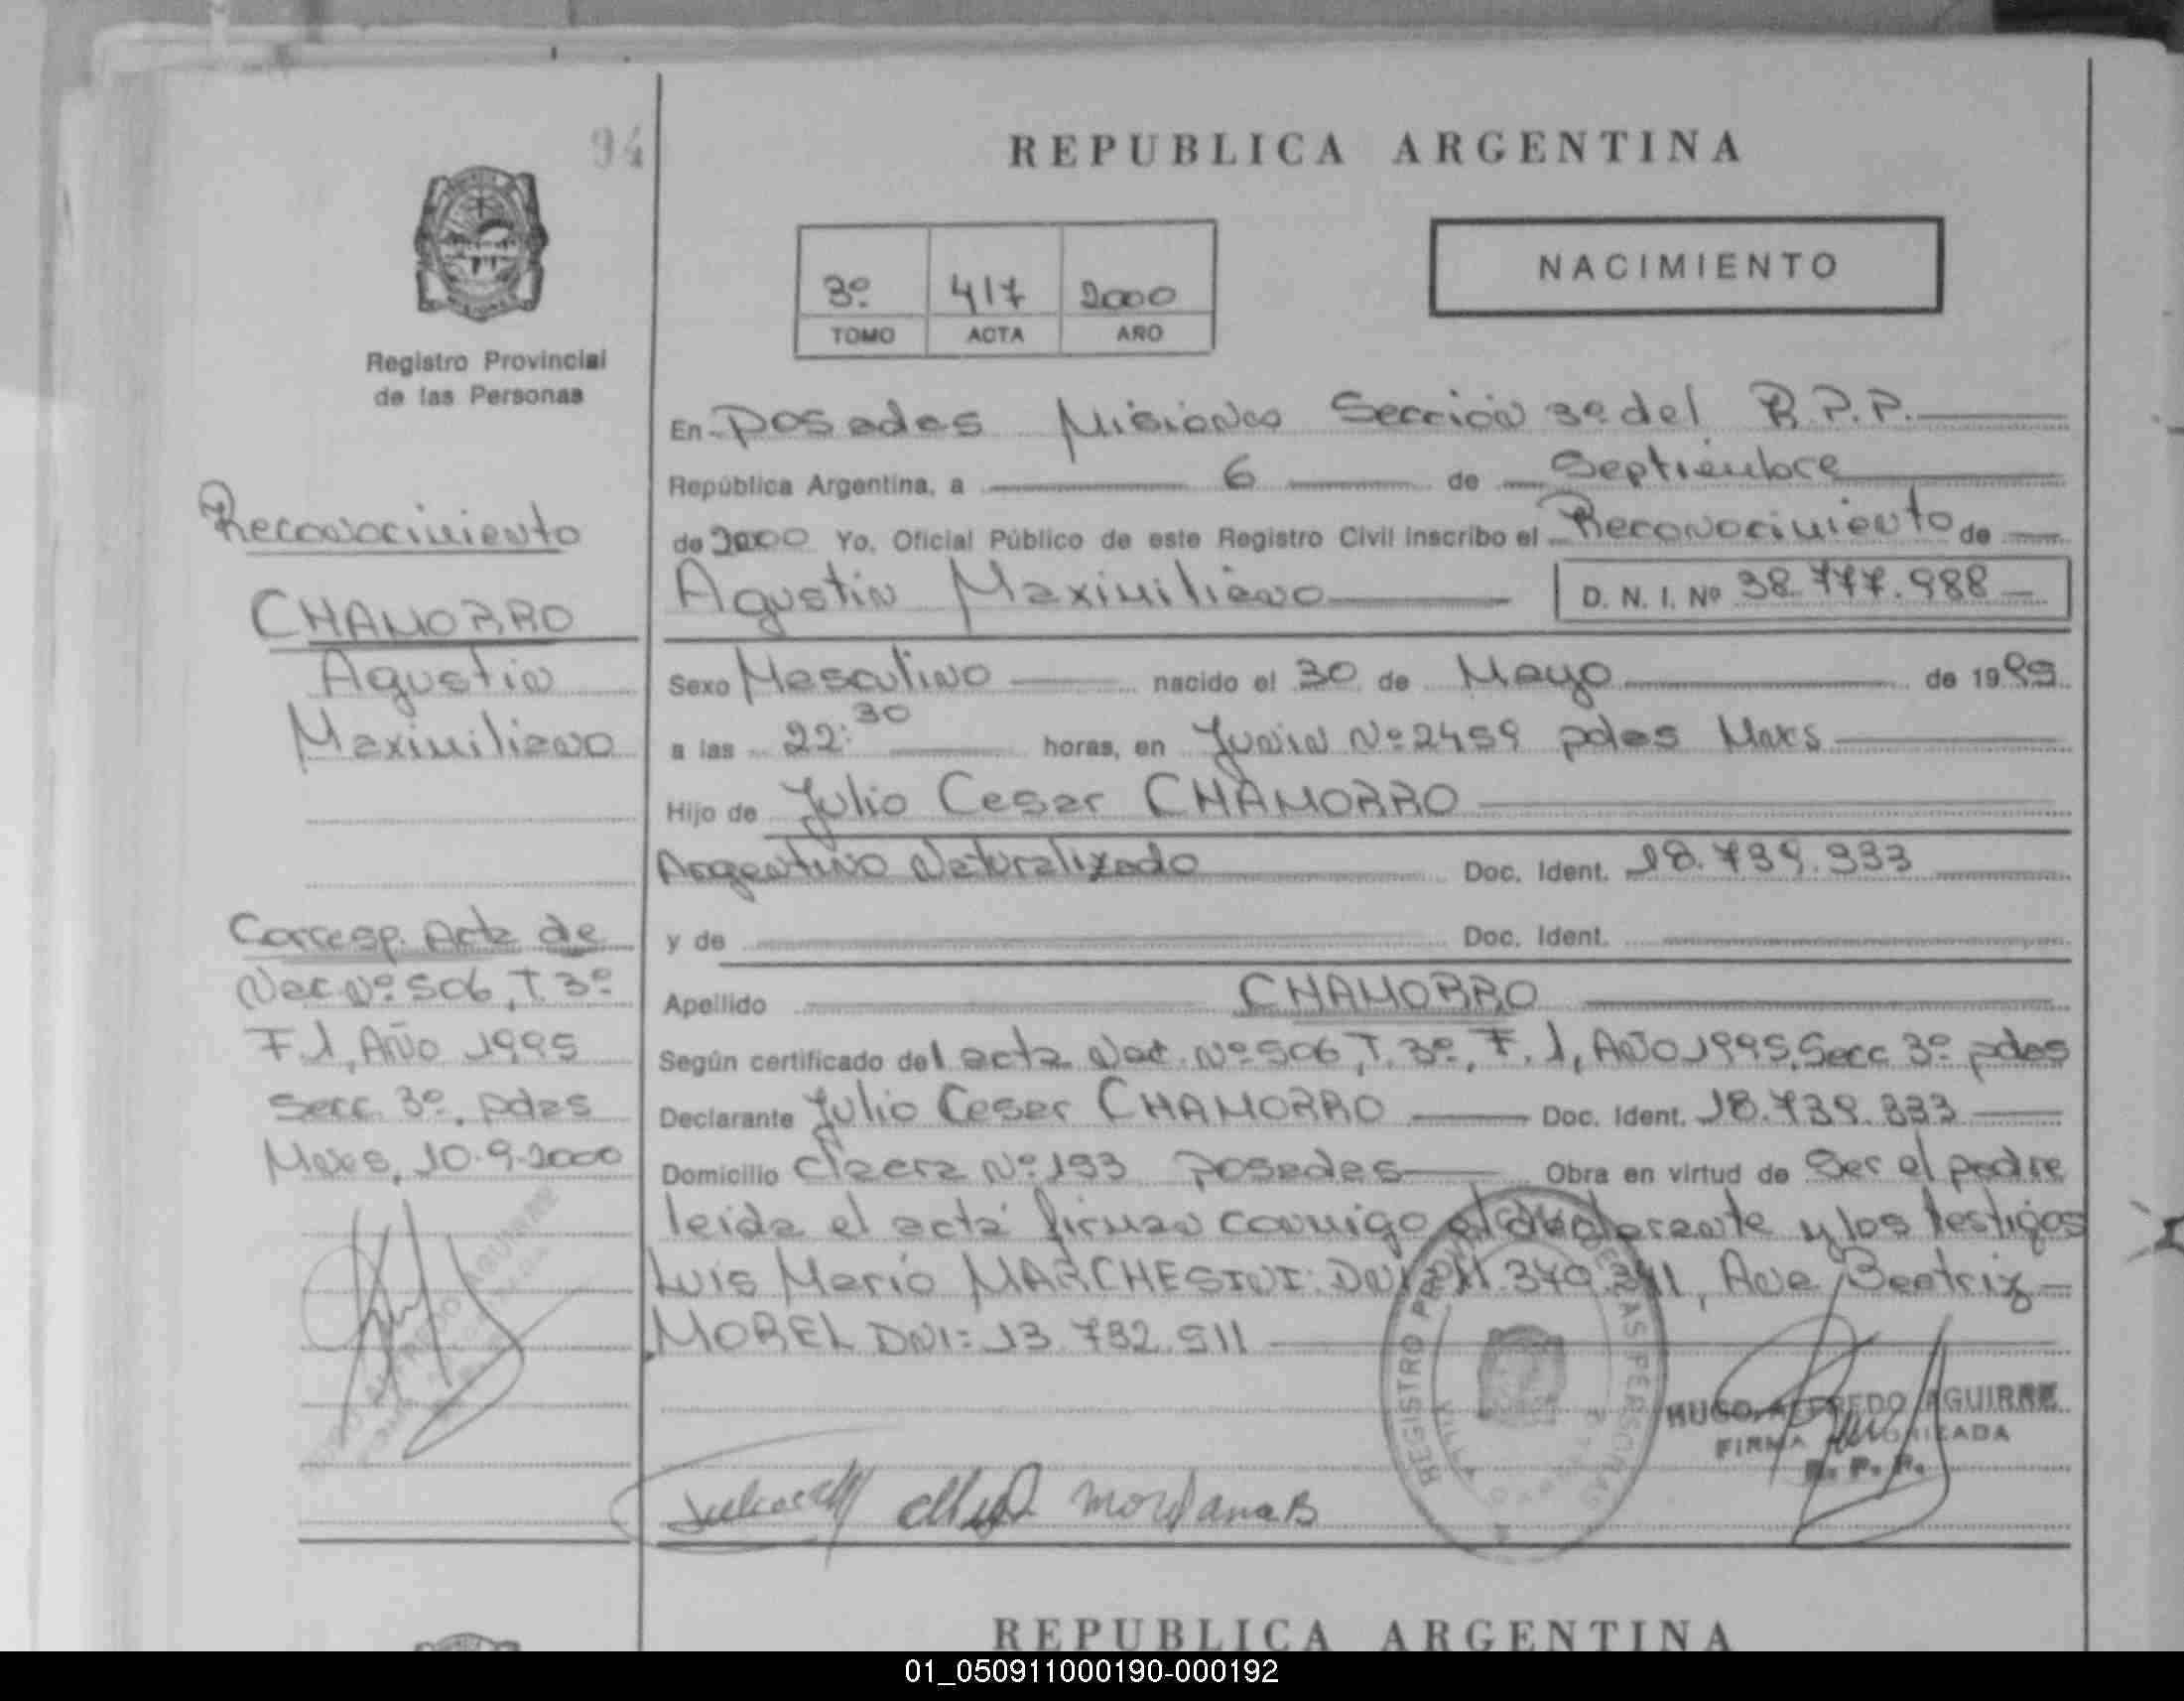 94
REPUBLICA ARGENTINA
NACIMIENTO
3º 417 2000
TOMO ACTA AÑO
Registro Provincial
de las Personas
Reconocimiento
CHAMORRO
Agustin
Maximiliano
Corresp. Acta de
Nac. Nº 506, T. 3º
F. 1, Año 1995
Secc. 3º, pdas
Mnes, 10-9-2000
En Posadas Misiones Sección 3º del R.P.P.
República Argentina, a 6 de Septiembre
de 2000 Yo, Oficial Público de este Registro Civil inscribo el Reconocimiento de
Agustin Maximiliano D. N. I. Nº 38.777.988
Sexo Masculino nacido el 30 de Mayo de 1995
a las 22:30 horas, en Junin Nº 2459 pdas Mnes
Hijo de Julio Cesar CHAMORRO
Argentino Naturalizado Doc. Ident. 18.739.333
y de Doc. Ident.
Apellido CHAMORRO
Según certificado del acta Nac. Nº 506, T. 3º, F. 1, Año 1995, Secc 3º pdas
Declarante Julio Cesar CHAMORRO Doc. Ident. 18.739.333
Domicilio Nº 193 Posadas Obra en virtud de Ser el padre
leida el acta firman conmigo el declarante y los testigos
Luis Mario MARCHESINI: DNI Ana Beatriz
MOREL DNI: 13.732.911
REGISTRO DE LAS PERSONAS
HUGO ALFREDO AGUIRRE
FIRMA AUTORIZADA
R. P. P.
Morel Ana B
REPUBLICA ARGENTINA
01_050911000190-000192